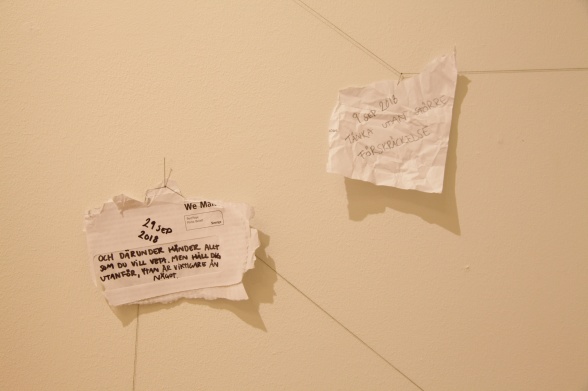 We Mak
29 SEP
2018
OCH DÄRUNDER HÄNDER ALLT
SOM DU VILL VETA. MEN HÅLL DIG
UTANFÖR, YTAN ÄR VIKTIGARE ÄN
NÅGOT.
9 SEP 2018
TÄNKA UTAN STÖRRE